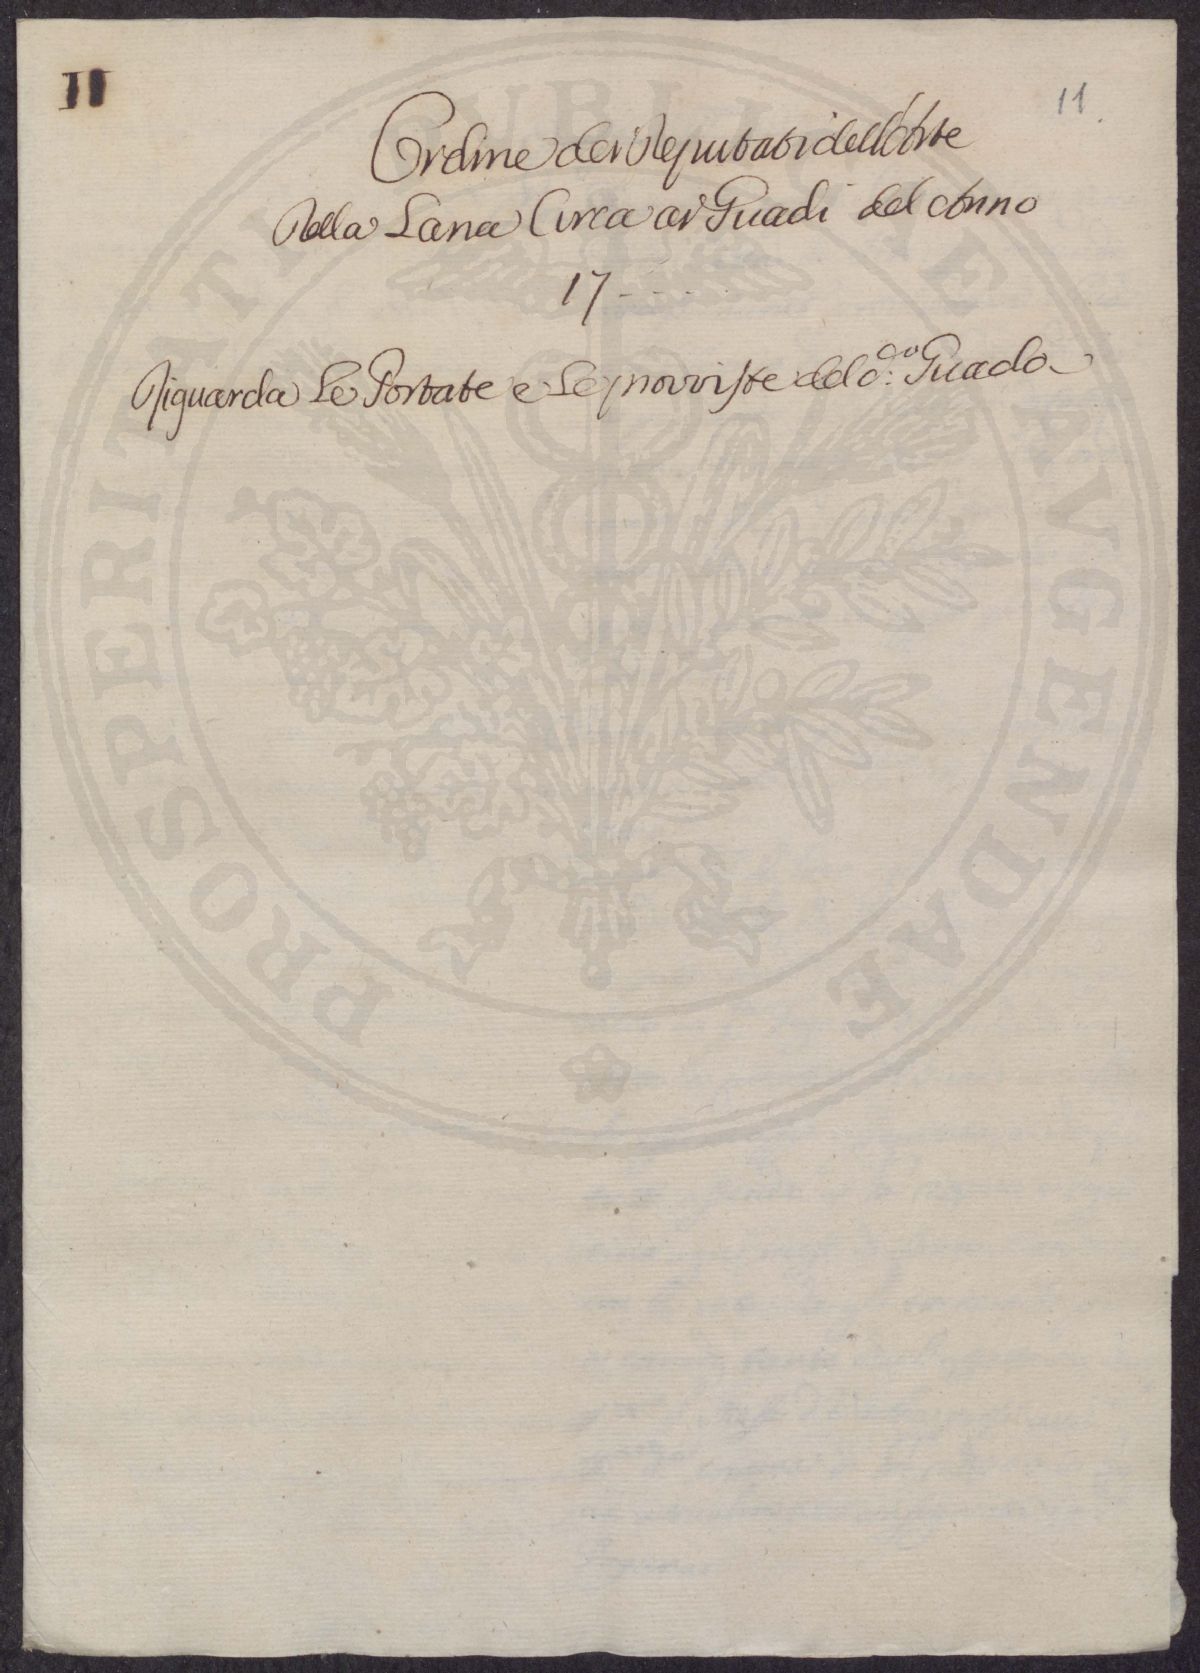 II
11.
Ordine dei Deputati dell'Arte
Della Lana Circa ai Guadi del Anno
17----
Riguarda Le Portate e Le provviste del d.º Guado
PROSPERITATI PUBLICAE AVGENDAE